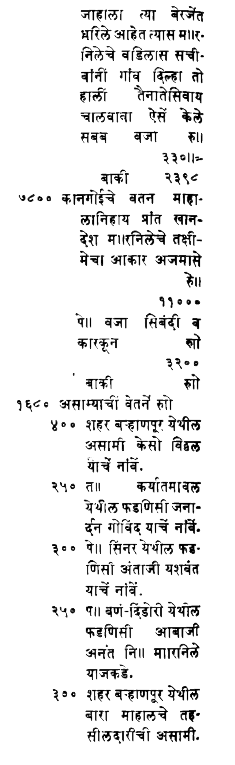 जाहाला त्या बेरजेंत
धरिले आहेत त्यास म॥र-
निलेचे वडिलास सची-
वांनीं गांव दिल्हा तो
हालीं तैनातेसिवाय
चालवावा ऐसें केले
सबब वजा रु॥
३३०॥=
बाकी २३९८
७८०० कानगोईचे वतन माहा-
लानिहाय प्रांत खान-
देश म॥रनिलेचे तक्षी-
मेचा आकार अजमासे
रु॥
११०००
पे॥ वजा सिबंदी व
कारकून रु॥
३२००
बाकी रु॥
१६८० असाम्याचीं वेतनें रु॥
४०० शहर बऱ्हाणपूर येथील
असामी केसो विठ्ठल
याचें नांवें.
२५० त॥ कर्यातमावल
येथील फडणिसी जना-
र्दन गोविंद याचें नांवें.
३०० पे॥ सिंनर येथील फड-
णिसी अंताजी यशवंत
याचें नांवें.
२५० प॥ वणं-दिंडोरी येथील
फडणिसी आबाजी
अनंत नि॥ मा॥रनिले
याजकडे.
३०० शहर बऱ्हाणपूर येथील
बारा माहालचे तह-
सीलदारीची असामी.